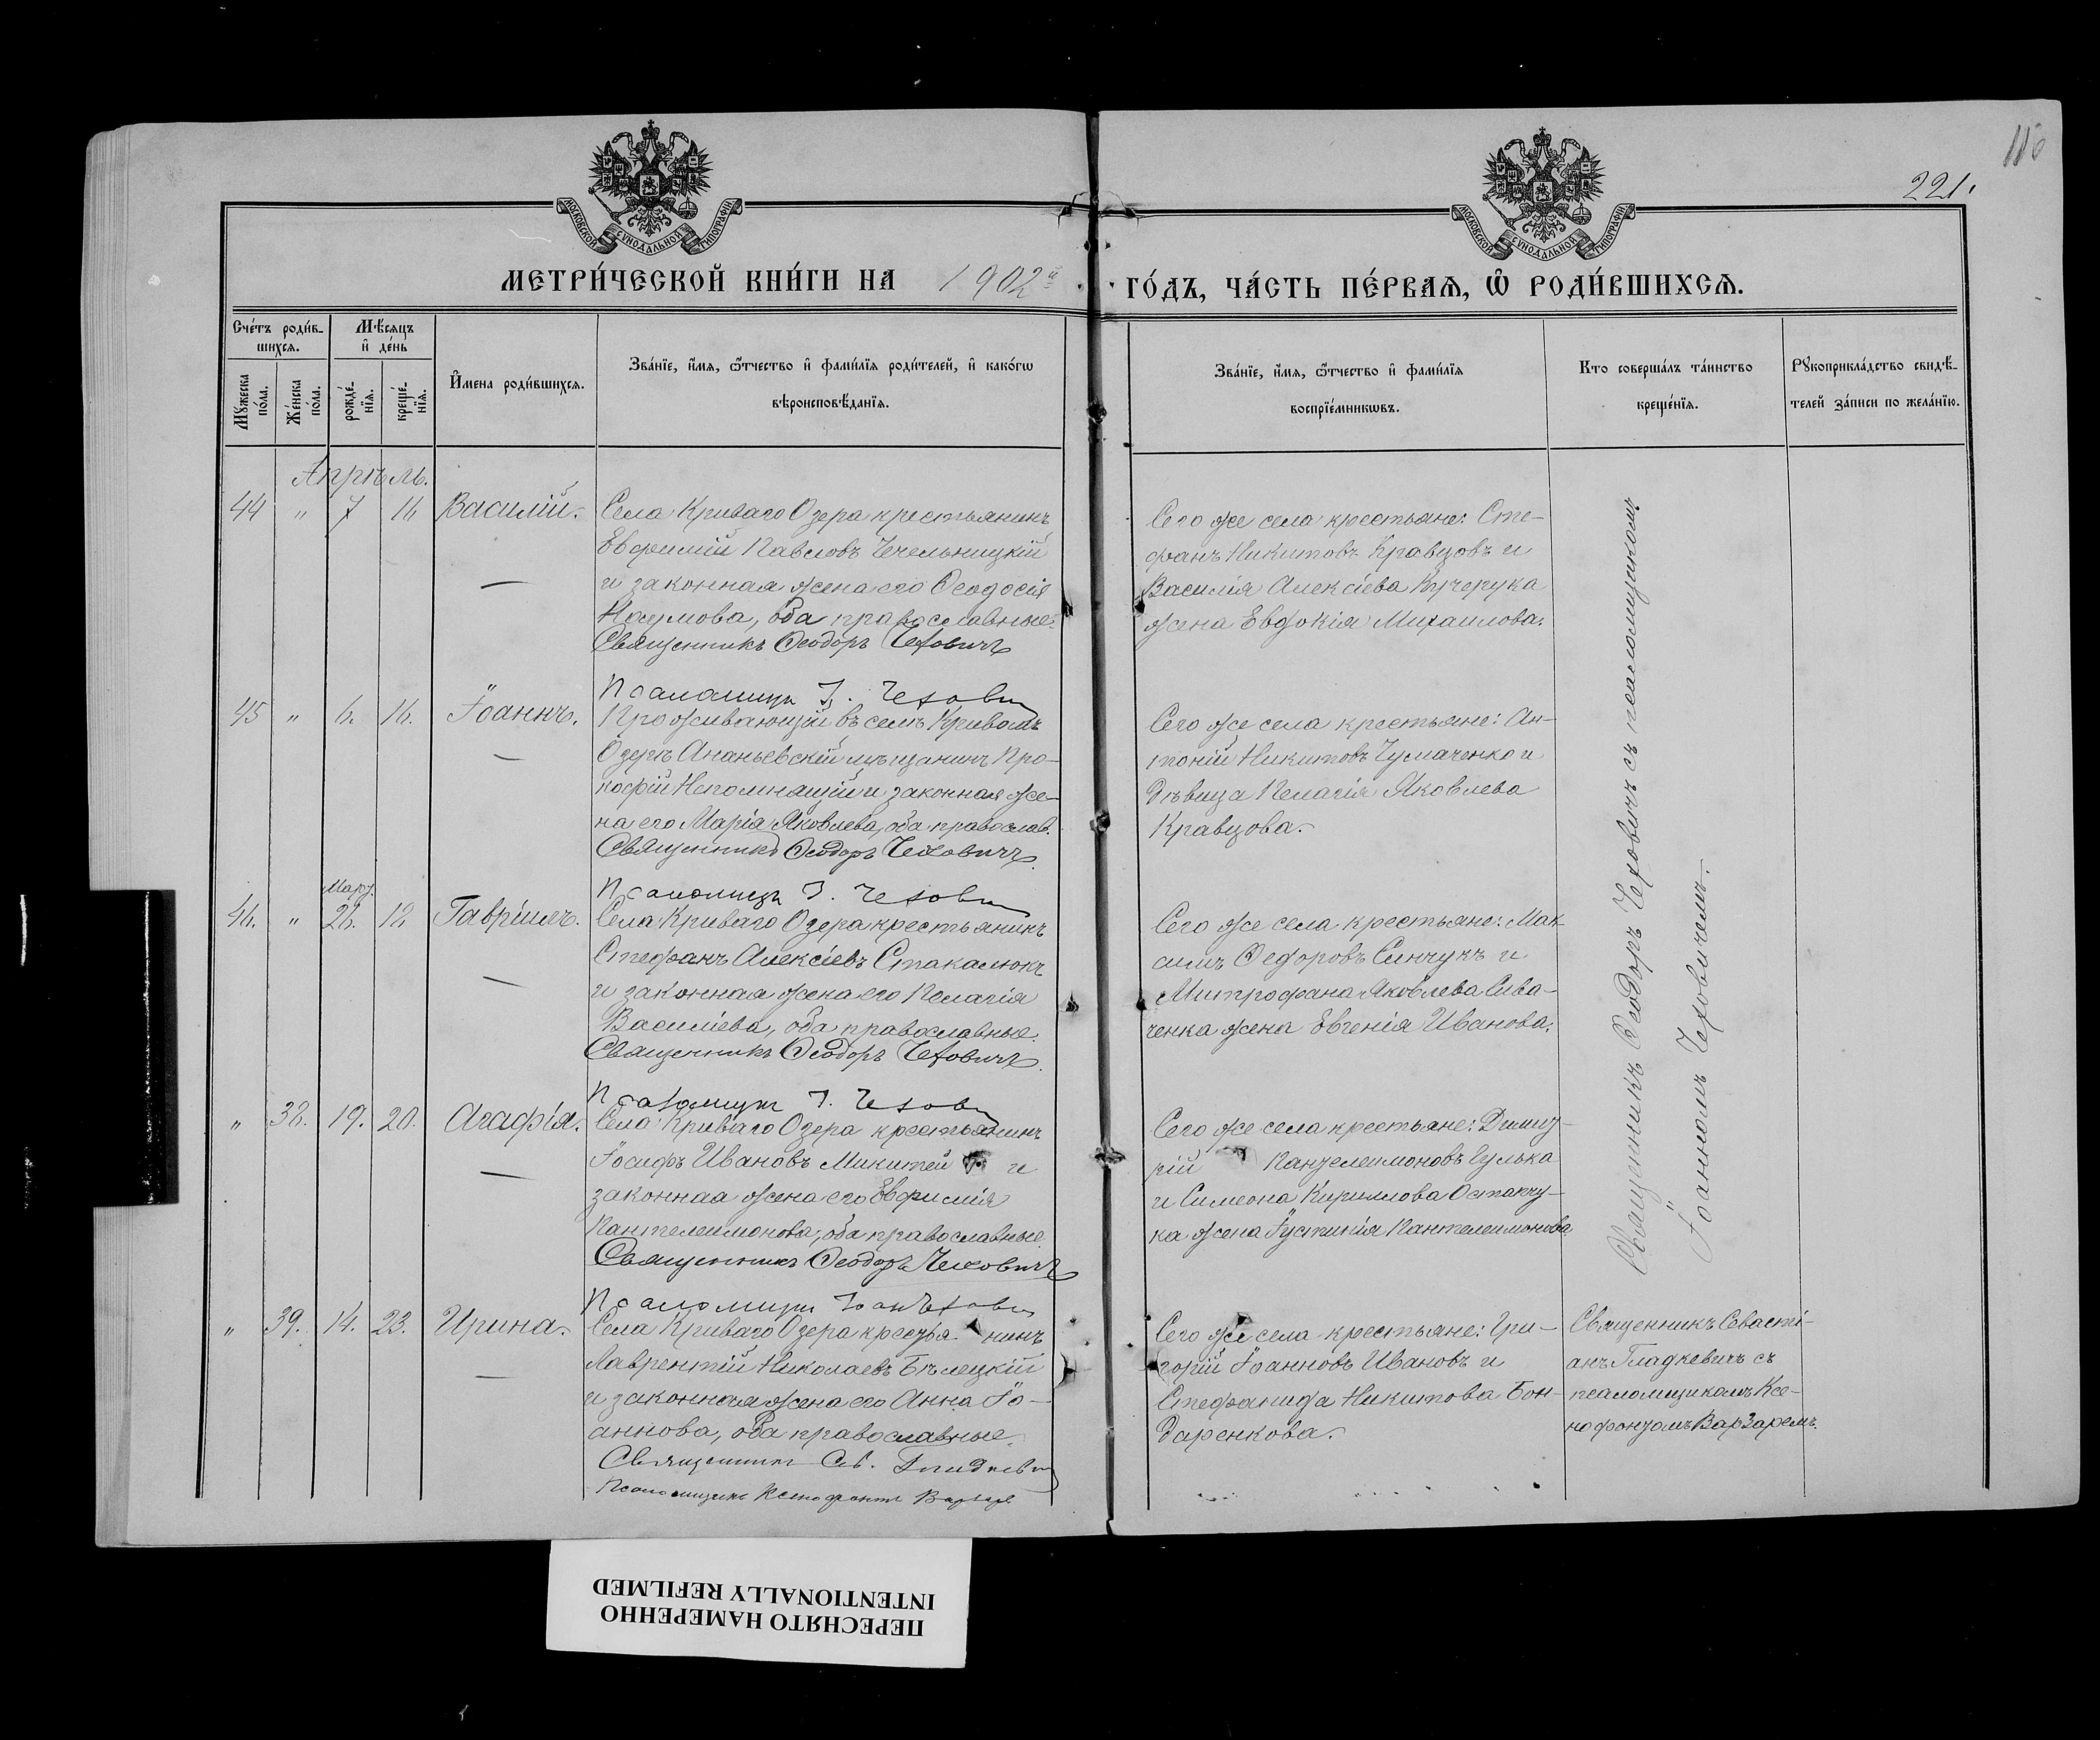 116
221.
МОСКОВСКОЙ СѴНОДАЛЬНОЙ ТИПОГРАФІИ
МОСКОВСКОЙ СѴНОДАЛЬНОЙ ТИПОГРАФІИ
МЕТРИ́ЧЕСКОЙ КНИ́ГИ НА 1902й ГО́ДЪ, ЧА́СТЬ ПЕ́РВАѦ, Ѡ҆ РОДИ́ВШИХСѦ.
Сче́тъ роди́в-
шихсѧ.
Мꙋ́жеска по́ла.
Же́нска по́ла.
Мѣ́сѧцъ
и҆ де́нь
рожде́-
нїѧ.
креще́-
нїѧ.
И҆мена роди́вшихсѧ.
Зва́нїе, и҆́мѧ, ѻ҆́тчество и҆ фами́лїѧ роди́телей, и҆ како́гѡ
вѣроисповѣ́данїѧ.
Зва́нїе, и҆́мѧ, ѻ҆́тчество и҆ фами́лїѧ
воспрїе́мникѡвъ.
Кто соверша́лъ та́инство
креще́нїѧ.
Рꙋкоприкла́дство свидѣ́-
телей за́писи по жела́нїю.
Апрѣль.
44 " 7 16 Василій.
Села Криваго Озера крестьянинъ
Евфимій Павловъ Чечельницкій
и законная жена его Ѳеодосія
Наумова, оба православные.
Священникъ Ѳеодоръ Чеховичъ
Псаломщикъ І. Чехович
Сего же села крестьяне: Сте-
фанъ Никитовъ Кравцовъ и
Василія Алексіева Кучерука
жена Евдокія Михаилова.
45 " 6. 16. Іоаннъ.
Проживающій въ селѣ Кривомъ
Озерѣ Ананьевскій мѣщанинъ Про-
кофій Непомнящій и законная же-
на его Марія Яковлева, оба православ.
Священникъ Ѳеодоръ Чеховичъ
Псаломщикъ І. Чехович
Сего же села крестьяне: Ан-
тоній Никитовъ Чумаченко и
дѣвица Пелагія Яковлева
Кравцова.
46. " Март. 26. 18 Гавріилъ.
Села Криваго Озера крестьянинъ
Стефанъ Алексіевъ Стакалюкъ
и законная жена его Пелагія
Василіева, оба православные.
Священникъ Ѳеодоръ Чеховичъ
Псаломщикъ І. Чехович
Сего же села крестьяне: Мак-
симъ Ѳедоровъ Синчукъ и
Митрофана Яковлева Сива-
ченка жена Евгенія Иванова.
" 38. 19. 20. Агафія.
Села Криваго Озера крестьянинъ
Іосифъ Ивановъ Микитей и
законная жена его Евфимія
Пантелеимонова, оба православные
Священникъ Ѳеодоръ Чеховичъ
Псаломщикъ Іоан Чехович
Сего же села крестьяне: Димит-
рій Пантелеимоновъ Гулька
и Симеона Кириллова Остапчу-
ка жена Іустинія Пантелеимонова.
Священникъ Ѳеодоръ Чеховичъ съ псаломщикомъ
Іоанномъ Чеховичемъ.
" 39. 14. 23. Ирина.
Села Криваго Озера крестьянинъ
Лаврентій Николаевъ Бѣлецкій
и законная жена его Анна Іо-
аннова, оба православные.
Священник Сев. Гладкевич
Псаломщикъ Ксенофонтъ Варзаръ
Сего же села крестьяне: Гри-
горій Іоанновъ Ивановъ и
Стефанида Никитова Бон-
даренкова.
Священникъ Севасті-
анъ Гладкевичъ съ
псаломщикомъ Ксе-
нофонтомъ Варзаремъ.
ПЕРЕСНЯТО НАМЕРЕННО
INTENTIONALLY REFILMED